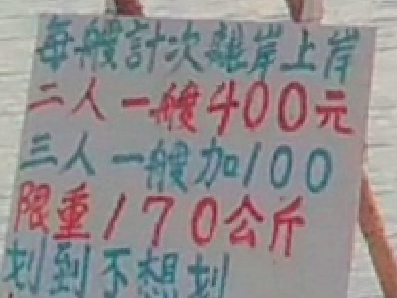 每艘計次離岸上岸
二人一艘400元
三人一艘加100
限重170公斤
划到不想划